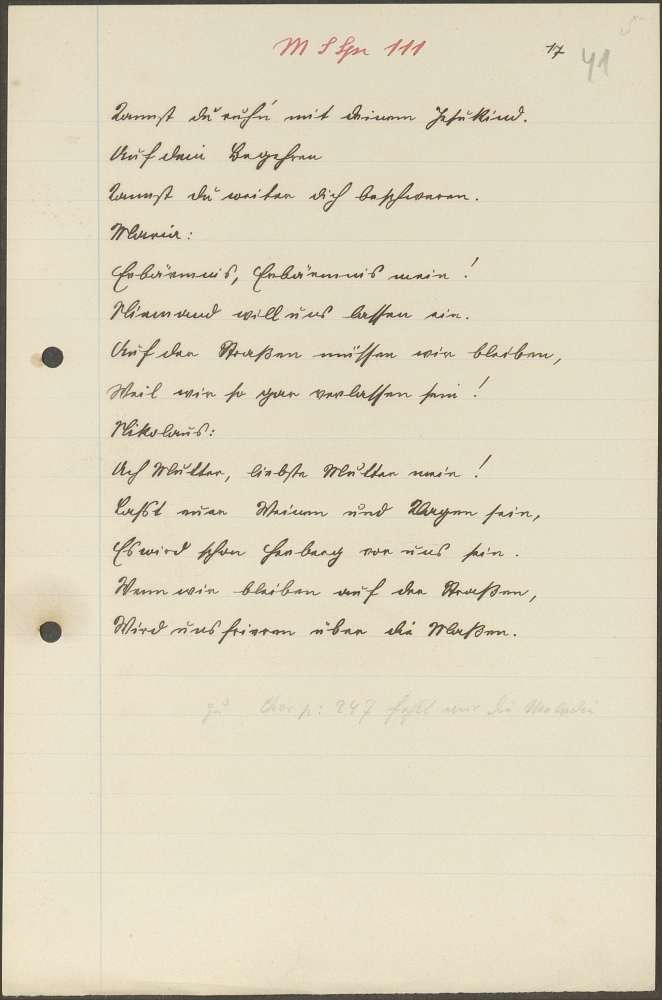 M S Spr 111 17 41
Kannst du ruhn mit deinem Jesukind.
Auf dein Begehren
Kannst du weiter dich beschweren.
Maria:
Erbärmnis, Erbärmnis mein!
Niemand will uns lassen ein.
Auf der Straßen müssen wir bleiben,
Weil wir so gar verlassen sein!
Nikolaus:
Ach Mutter, liebste Mutter mein!
Laßt euer Weinen und Klagen sein,
Es wird schon Herberg vor uns sein.
Wenn wir bleiben auf der Straßen,
Wird uns frieren über die Maßen.
zu p: 247 fehlt nur die Melodie